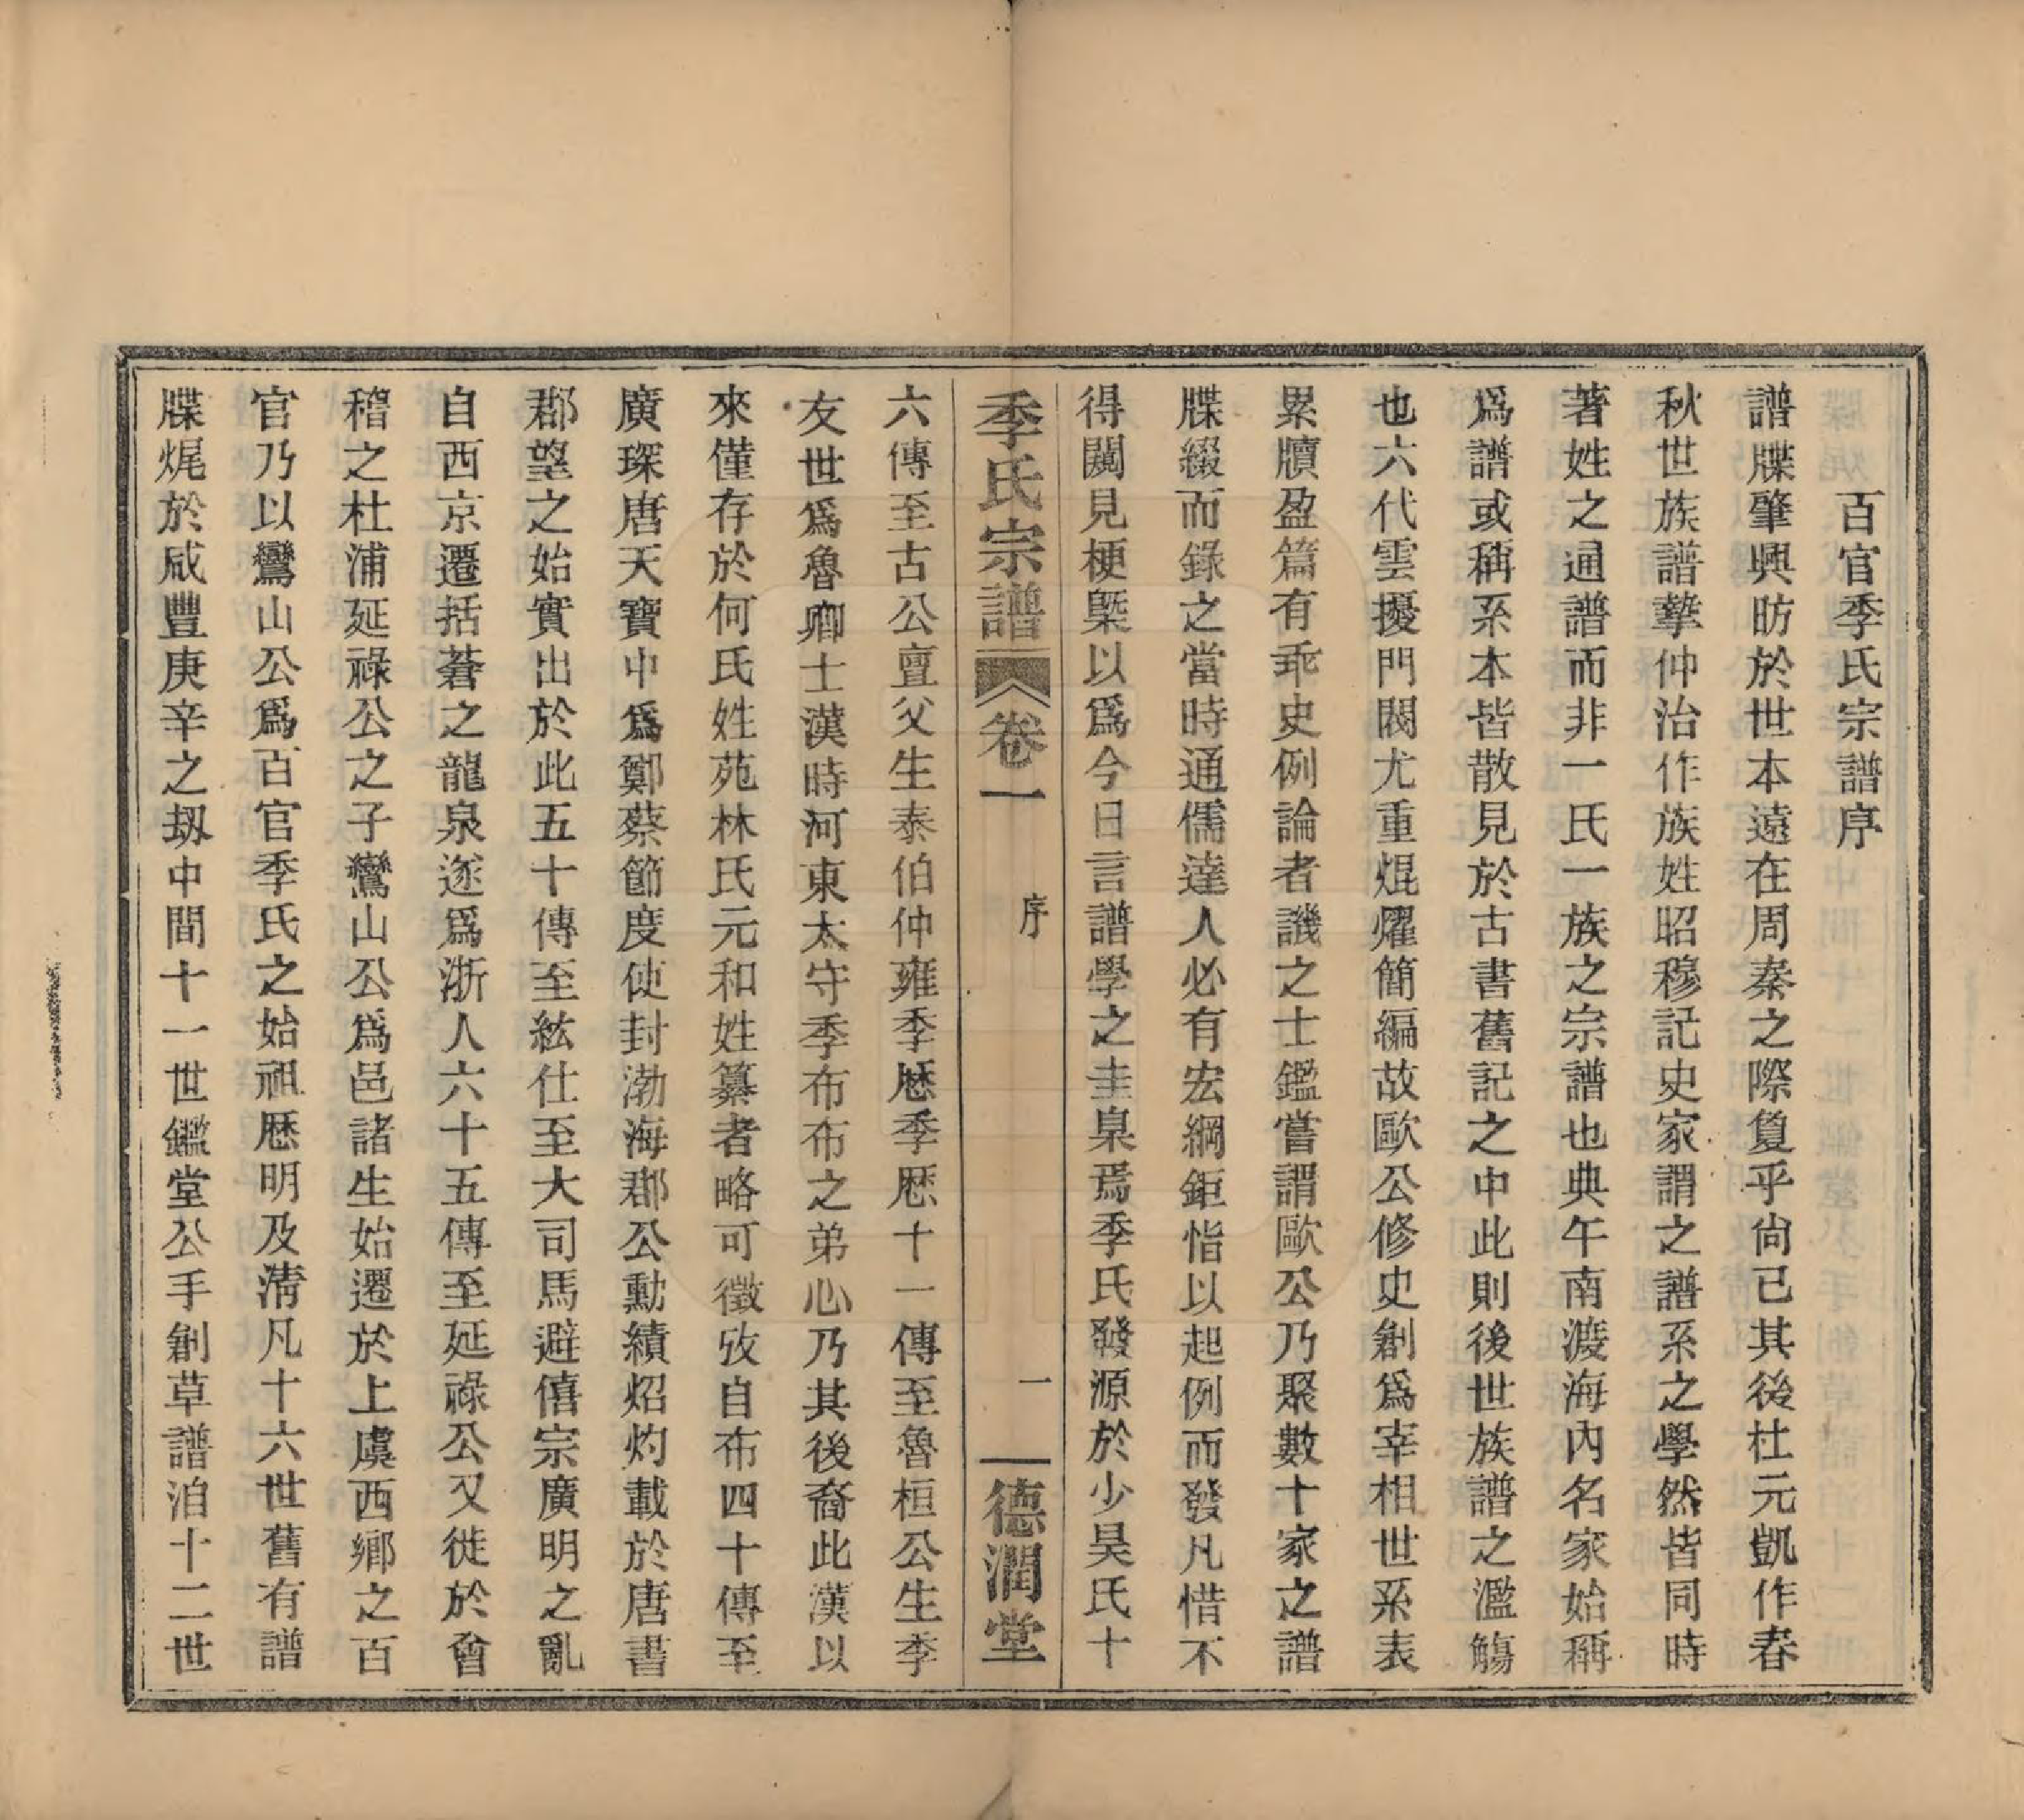 百官季氏宗譜序
譜牒肇興昉於世本遠在周秦之際敻乎尙已其後杜元凱作春
秋世族譜摯仲治作族姓昭穆記史家謂之譜系之學然皆同時
著姓之通譜而非一氏一族之宗譜也典午南渡海內名家始稱
爲譜或稱系本皆散見於古書舊記之中此則後世族譜之濫觴
也六代雲擾門閥尤重焜燿簡編故歐公修史創爲宰相世系表
累牘盈篇有乖史例論者譏之士鑑嘗謂歐公乃聚數十家之譜
牒綴而錄之當時通儒達人必有宏綱鉅恉以起例而發凡惜不
得闚見梗槩以爲今日言譜學之圭臬焉季氏發源於少昊氏十
季氏宗譜 卷一 序 一 德潤堂
六傳至古公亶父生泰伯仲雍季歷季歷十一傳至魯桓公生季
友世爲魯卿士漢時河東太守季布布之弟心乃其後裔此漢以
來僅存於何氏姓苑林氏元和姓纂者略可徵攷自布四十傳至
廣琛唐天寶中爲鄭蔡節度使封渤海郡公勳績炤灼載於唐書
郡望之始實出於此五十傳至紘仕至大司馬避僖宗廣明之亂
自西京遷括蒼之龍泉遂爲浙人六十五傳至延祿公又徙於會
稽之杜浦延祿公之子鸞山公爲邑諸生始遷於上虞西鄉之百
官乃以鸞山公爲百官季氏之始祖歷明及淸凡十六世舊有譜
牒焜於咸豐庚辛之刼中間十一世鑑堂公手創草譜洎十二世